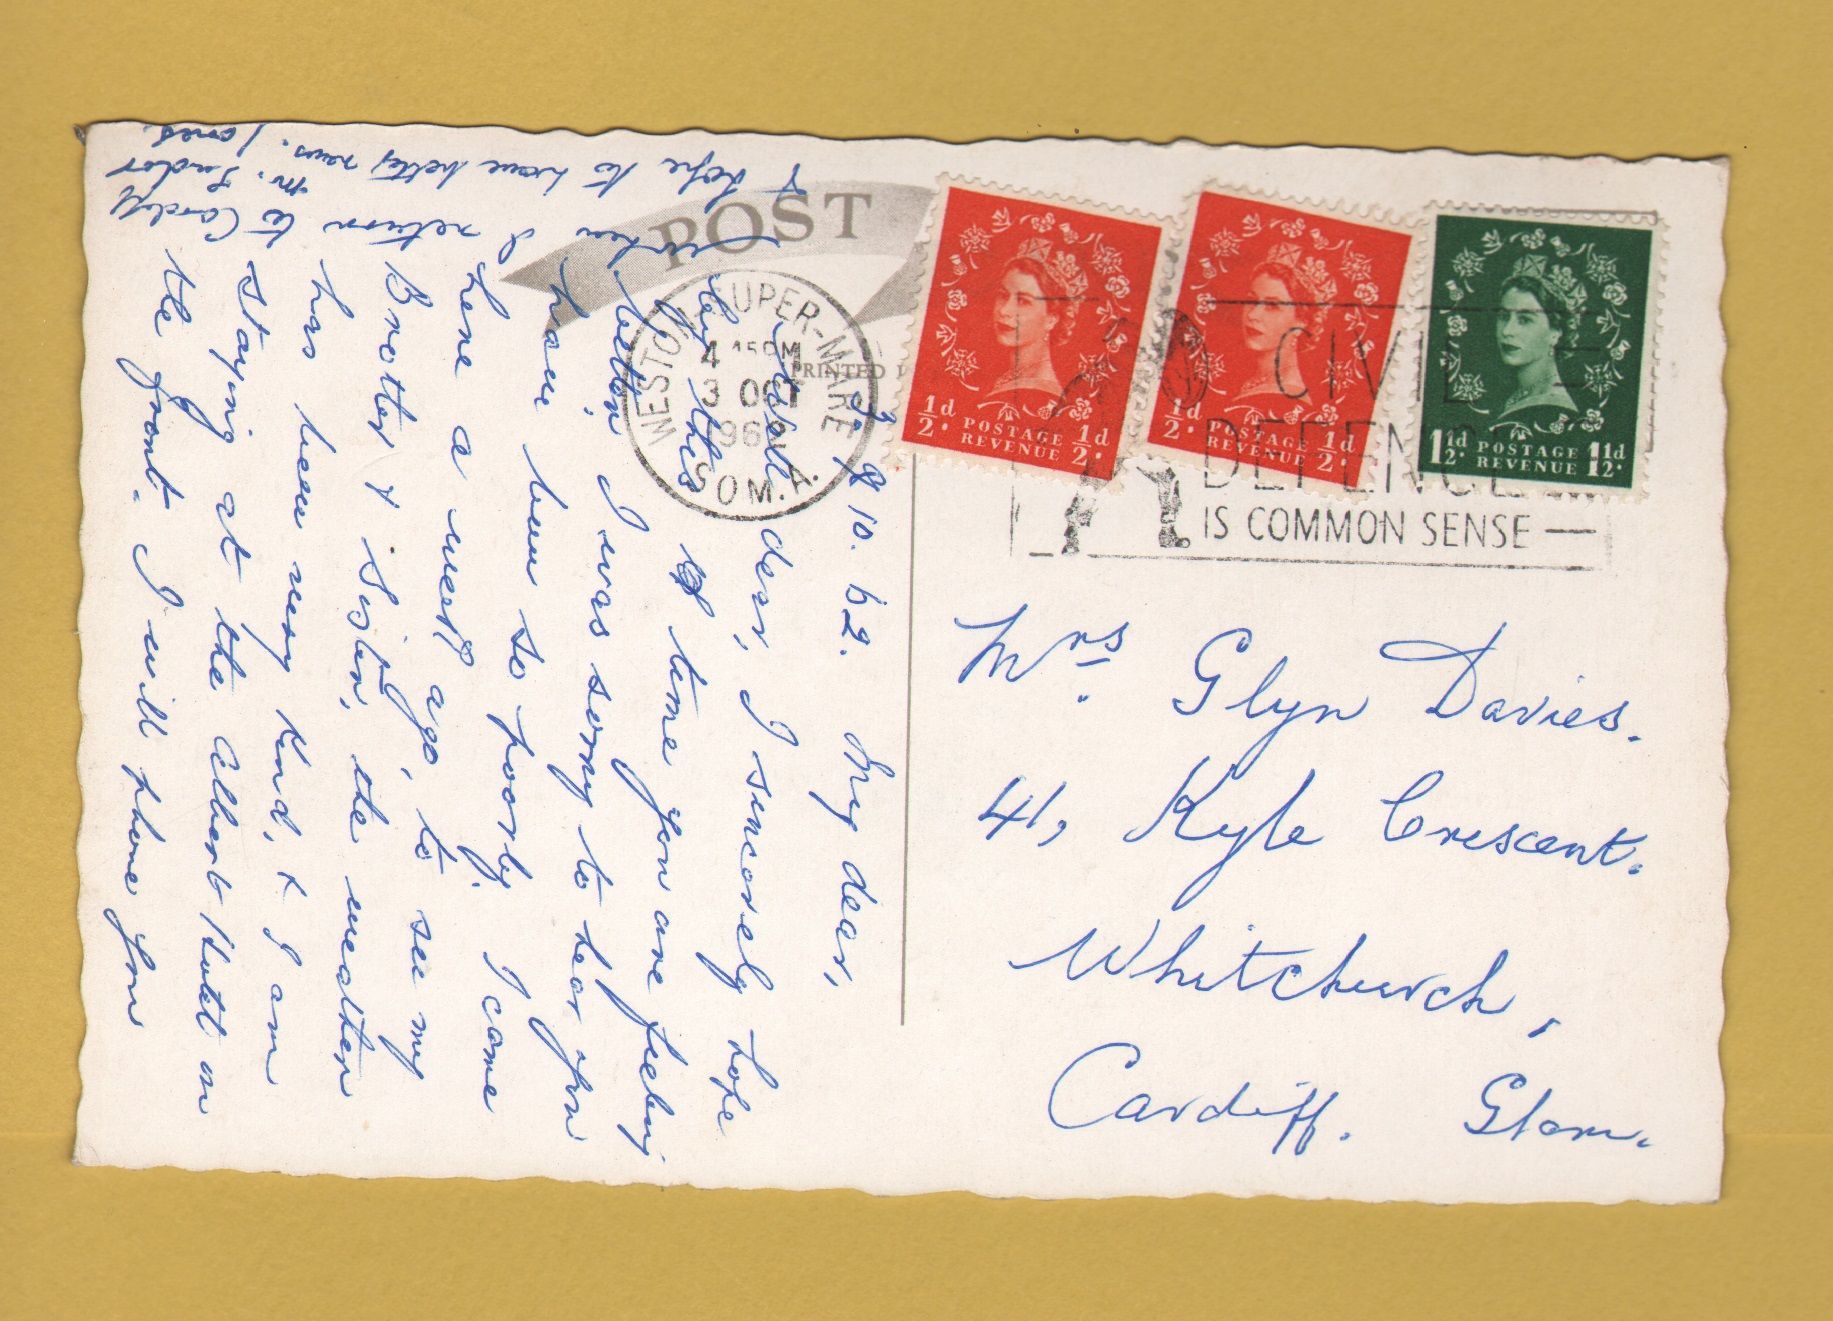 POST
PRINTED
WESTON-SUPER-MARE
4 15 PM
3 OCT
1962
SOM.
½d POSTAGE REVENUE ½d
½d POSTAGE REVENUE ½d
1½d POSTAGE REVENUE 1½d
CIVIL
DEFENCE
IS COMMON SENSE
3. 10. 62. My dear,
dear, I sincerely hope
by this time you are feeling
better, I was sorry to hear you
have been so poorly. I came
here a week ago, to see my
Brother & Sister, the weather
has been very kind, & I am
staying at the Albert Hotel on
the front. I will phone you
when I return to Cardiff
& hope to have better news.
M. Tudor
Jones.
Mrs. Glyn Davies.
41, Kyle Crescent.
Whitchurch,
Cardiff. Glam.